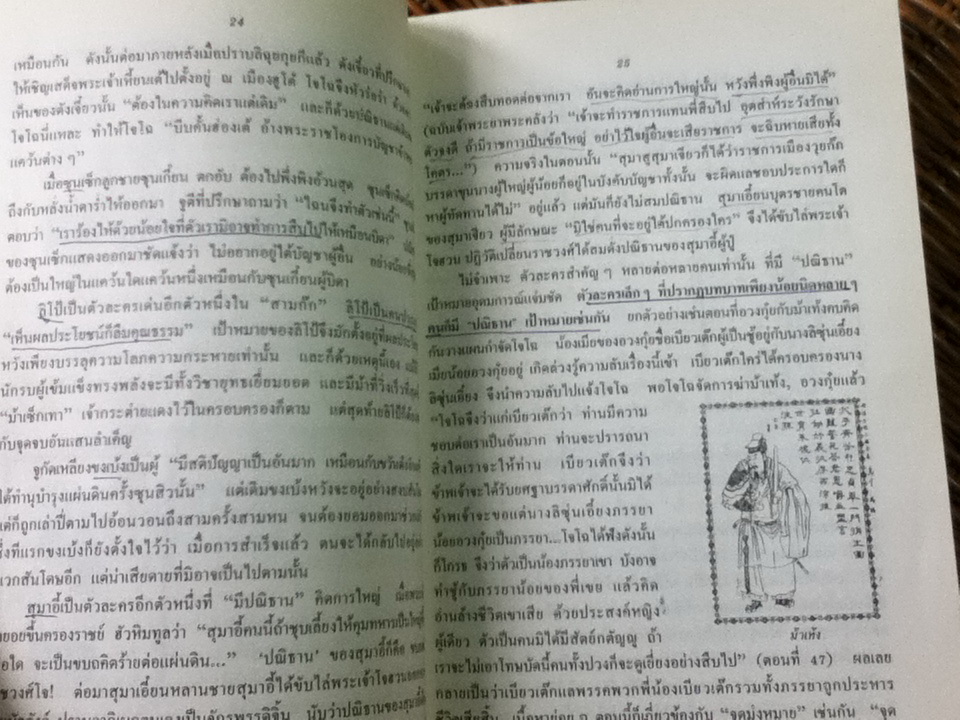 24
เหมือนกัน ดังนั้นต่อมาภายหลังเมื่อปราบลิฉุยกุยกีแล้ว ตังเจี๋ยวที่ปรึกษา
ให้เชิญเสด็จพระเจ้าเหี้ยนเต้ไปตั้งอยู่ ณ เมืองฮูโต๋ โจโฉจึงหัวร่อว่า
เห็นของตังเจี๋ยวนั้น “ต้องในความคิดเราแต่เดิม” และก็ด้วยปณิธานแต่เดิม
โจโฉนี่แหละ ทำให้โจโฉ “บีบคั้นฮ่องเต้ อ้างพระราชโองการบัญชาหัวเมือง
แคว้นต่าง ๆ”
เมื่อซุนเซ็กลูกชายซุนเกี๋ยน ตกอับ ต้องไปพึ่งพิงอ้วนสุด ซุนเซ็ก
ถึงกับหลั่งน้ำตาร่ำไห้ออกมา จูตีที่ปรึกษาถามว่า “ไฉนจึงทำตัวเช่นนี้”
ตอบว่า “เราร้องไห้ด้วยน้อยใจที่ตัวเรามิอาจทำการสืบไปให้เหมือนบิดา”
ของซุนเซ็กแสดงออกมาชัดแจ้งว่า ไม่อยากอยู่ใต้บัญชาผู้อื่น อย่างน้อยก็
ต้องเป็นใหญ่ในแคว้นใดแคว้นหนึ่งเหมือนกับซุนเกี๋ยนผู้บิดา
ลิโป้เป็นตัวละครเด่นอีกตัวหนึ่งใน “สามก๊ก” ลิโป้เป็นคน
“เห็นผลประโยชน์ก็ลืมคุณธรรม” เป้าหมายของลิโป้จึงมักตั้งอยู่ที่ผลประโยชน์
หวังเพียงบรรลุความโลภความกระหายเท่านั้น และก็ด้วยเหตุนี้เอง แม้มี
นักรบผู้เข้มแข็งทรงพลังจะมีทั้งวิชายุทธเยี่ยมยอด และมีม้าที่วิ่งเร็วที่สุด
“ม้าเซ็กเทา” เจ้ากระต่ายแดงไว้ในครอบครองก็ตาม แต่สุดท้ายลิโป้ก็ต้อง
กับจุดจบอันแสนลำเค็ญ
จูกัดเหลียงขงเบ้งเป็นผู้ “มีสติปัญญาเป็นอันมาก เหมือนกับขวันต๋ง
ได้ทำนุบำรุงแผ่นดินครั้งชุนสิวนั้น” แต่เดิมขงเบ้งหวังจะอยู่อย่างสงบ
แต่ก็ถูกเล่าปี่ตามไปอ้อนวอนถึงสามครั้งสามหน จนต้องยอมออกมาช่วย
ซึ่งทีแรกขงเบ้งก็ยังตั้งใจไว้ว่า เมื่อการสำเร็จแล้ว ตนจะได้กลับไป
เวกสันโดษอีก แต่น่าเสียดายที่มิอาจเป็นไปตามนั้น
สุมาอี้เป็นตัวละครอีกตัวหนึ่งที่ “มีปณิธาน” คิดการใหญ่
ยอยขึ้นครองราชย์ ฮัวหิมทูลว่า “สุมาอี้คนนี้ถ้าชุบเลี้ยงให้คุมทหารเป็นใหญ่
อใด จะเป็นขบถคิดร้ายต่อแผ่นดิน...” ‘ปณิธาน’ ของสุมาอี้ก็คือ
ชวงศ์โจ! ต่อมาสุมาเอี๋ยนหลานชายสุมาอี้ได้ขับไล่พระเจ้าโจฮวน
25
“เจ้าจะต้องสืบทอดต่อจากเรา อันจะคิดอ่านการใหญ่นั้น หวังพึ่งพิงผู้อื่นมิได้”
(ฉบับเจ้าพระยาพระคลังว่า “เจ้าจะทำราชการแทนที่สืบไป อุตส่าห์ระวังรักษา
ตัวจงดี ถ้ามีราชการเป็นข้อใหญ่ อย่าไว้ใจผู้อื่นจะเสียราชการ จะฉิบหายเสียทั้ง
โคตร...”) ความจริงในตอนนั้น “สุมาสูสุมาเจียวก็ได้ว่าราชการเมืองวุยก๊ก
บรรดาขุนนางผู้ใหญ่ผู้น้อยก็อยู่ในบังคับบัญชาทั้งนั้น จะผิดแลชอบประการใดก็
หาผู้ทัดทานได้ไม่” อยู่แล้ว แต่มันก็ยังไม่สมปณิธาน สุมาเอี๋ยนบุตรชายคนโต
ของสุมาเจียว ผู้มีลักษณะ “มิใช่คนที่จะอยู่ใต้ปกครองใคร” จึงได้ขับไล่พระเจ้า
โจฮวน ปฏิวัติเปลี่ยนราชวงศ์ได้สมดังปณิธานของสุมาอี้ผู้ปู่
ไม่จำเพาะ ตัวละครสำคัญ ๆ หลายต่อหลายคนเท่านั้น ที่มี “ปณิธาน”
เป้าหมายอุดมการณ์แจ่มชัด ตัวละครเล็ก ๆ ที่ปรากฏบทบาทเพียงน้อยนิดหลาย ๆ
คนก็มี ‘ปณิธาน’ เป้าหมายเช่นกัน ยกตัวอย่างเช่นตอนที่อวงกุ๋ยกับม้าเท้งคบคิด
กันวางแผนกำจัดโจโฉ น้องเมียของอวงกุ๋ยชื่อเบียวเต๊กผู้เป็นชู้อยู่กับนางลิซุ่นเฮี่ยง
เมียน้อยอวงกุ๋ยอยู่ เกิดล่วงรู้ความลับเรื่องนี้เข้า เบียวเต๊กใคร่ได้ครอบครองนาง
ลิซุ่นเฮี่ยง จึงนำความลับไปแจ้งโจโฉ พอโจโฉจัดการฆ่าม้าเท้ง, อวงกุ๋ยแล้ว
“โจโฉจึงว่าแก่เบียวเต๊กว่า ท่านมีความ
ชอบต่อเราเป็นอันมาก ท่านจะปรารถนา
สิ่งใดเราจะให้ท่าน เบียวเต๊กจึงว่า
ข้าพเจ้าจะได้รับยศฐาบรรดาศักดิ์นั้นมิได้
ข้าพเจ้าจะขอแต่นางลิซุ่นเฮี่ยงภรรยา
น้อยอวงกุ๋ยเป็นภรรยา...โจโฉได้ฟังดังนั้น
ก็โกรธ จึงว่าตัวเป็นน้องภรรยาเขา บังอาจ
ทำชู้กับภรรยาน้อยของพี่เขย แล้วคิด
อ่านล้างชีวิตเขาเสีย ด้วยประสงค์หญิง
ผู้เดียว ตัวเป็นคนมิได้มีสัตย์กตัญญู ถ้า
เราจะไม่เอาโทษบัดนี้คนทั้งปวงก็จะดูเยี่ยงอย่างสืบไป” (ตอนที่ 47) ผลเลย
กลายเป็นว่าเบียวเต๊กแลพรรคพวกพี่น้องเบียวเต๊กรวมทั้งภรรยาถูกประหาร
ชีวิตเสียสิ้น เนื้อหาย่อย ๆ ตอนนี้ก็เกี่ยวข้องกับ “จุดมุ่งหมาย” เช่นกัน “จุด
ม้าเท้ง